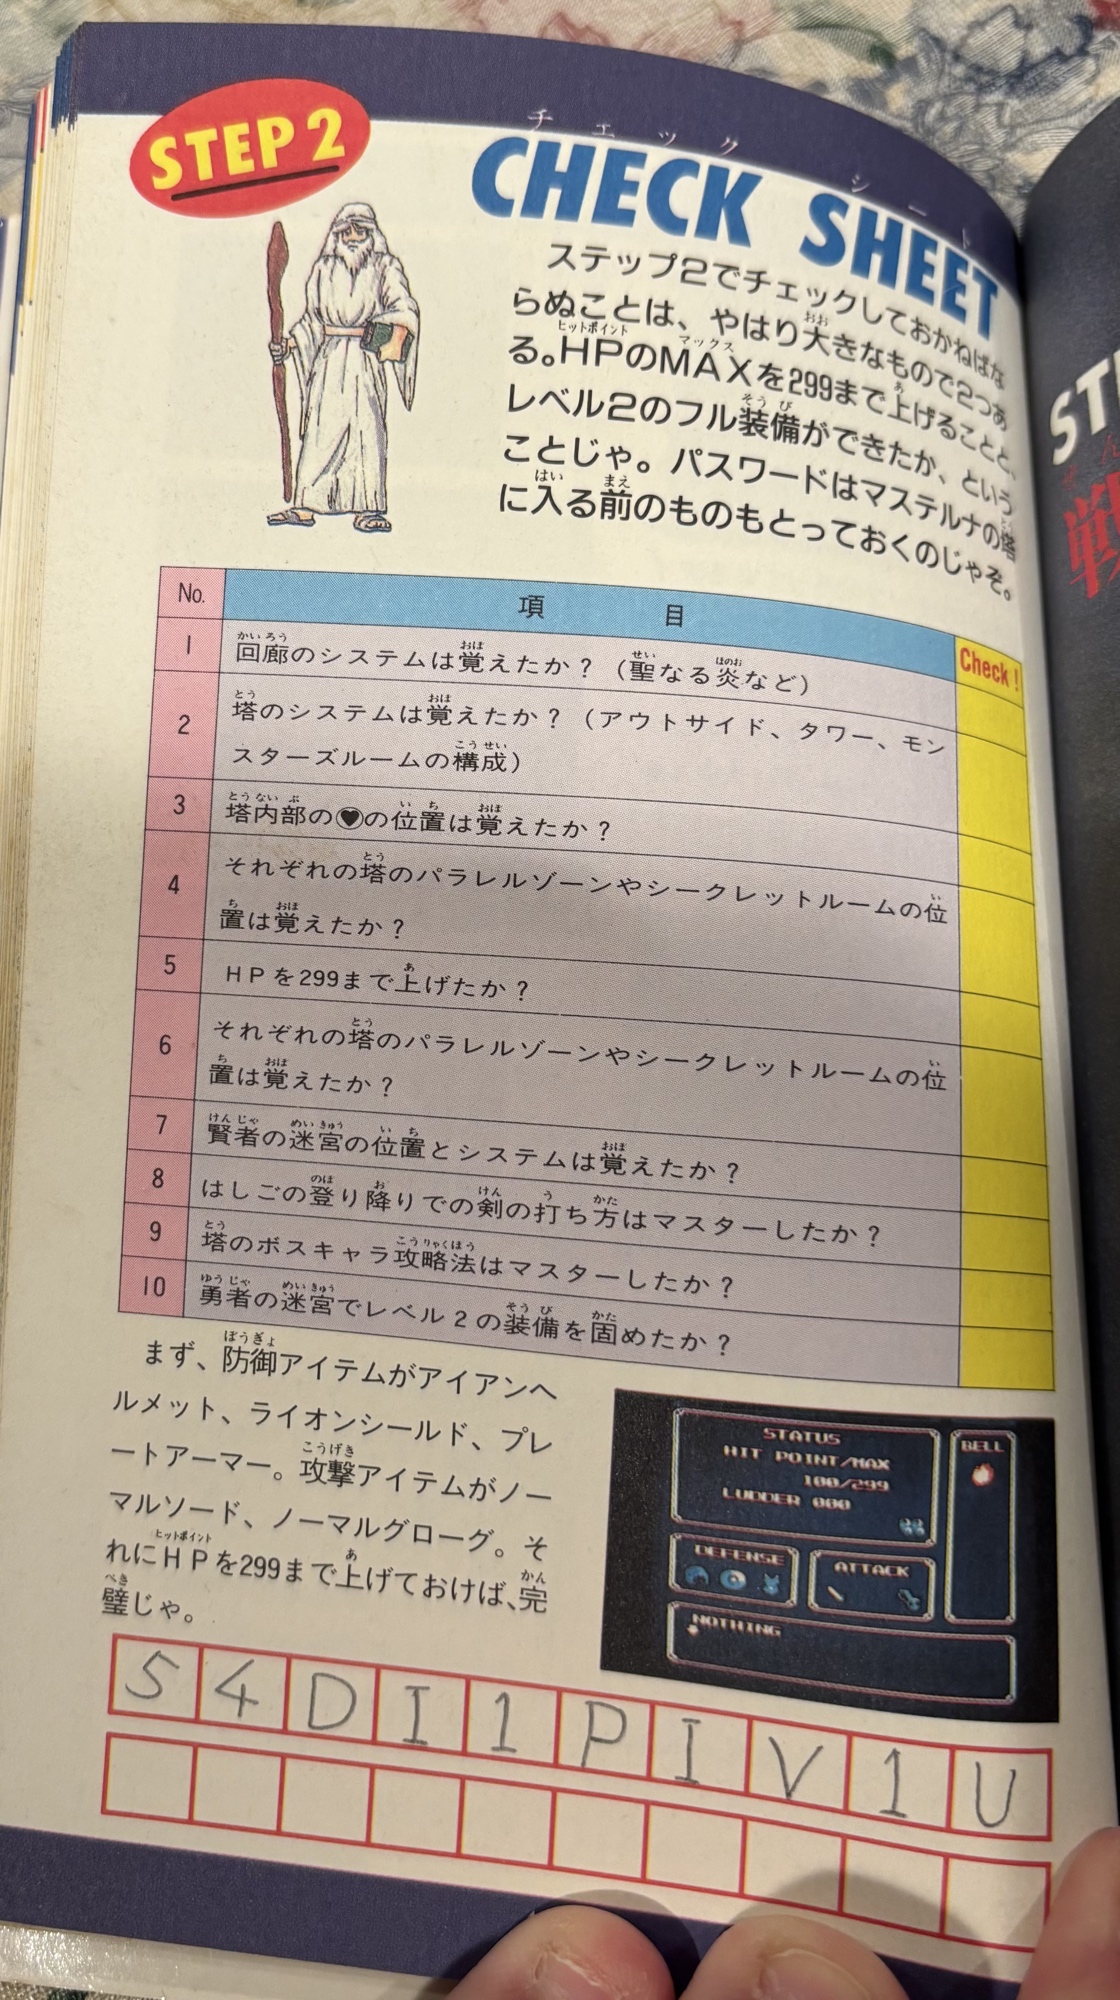 STEP 2
チェックシート
CHECK SHEET
ステップ2でチェックしておかねばな
らぬことは、やはり大きなもので2つあ
る。HPのMAXを299まで上げることと、
レベル2のフル装備ができたか、という
ことじゃ。パスワードはマステルナの塔
に入る前のものもとっておくのじゃぞ。
No. 項目 Check!
1 回廊のシステムは覚えたか？（聖なる炎など）
2 塔のシステムは覚えたか？（アウトサイド、タワー、モン
スターズルームの構成）
3 塔内部の♥の位置は覚えたか？
4 それぞれの塔のパラレルゾーンやシークレットルームの位
置は覚えたか？
5 HPを299まで上げたか？
6 それぞれの塔のパラレルゾーンやシークレットルームの位
置は覚えたか？
7 賢者の迷宮の位置とシステムは覚えたか？
8 はしごの登り降りでの剣の打ち方はマスターしたか？
9 塔のボスキャラ攻略法はマスターしたか？
10 勇者の迷宮でレベル2の装備を固めたか？
まず、防御アイテムがアイアンヘ
ルメット、ライオンシールド、プレ
ートアーマー。攻撃アイテムがノー
マルソード、ノーマルグローグ。そ
れにHPを299まで上げておけば、完
璧じゃ。
STATUS
HIT POINT/MAX
100/299
LUDDER 000
BELL
DEFENSE
ATTACK
NOTHING
54DI1PIV1U